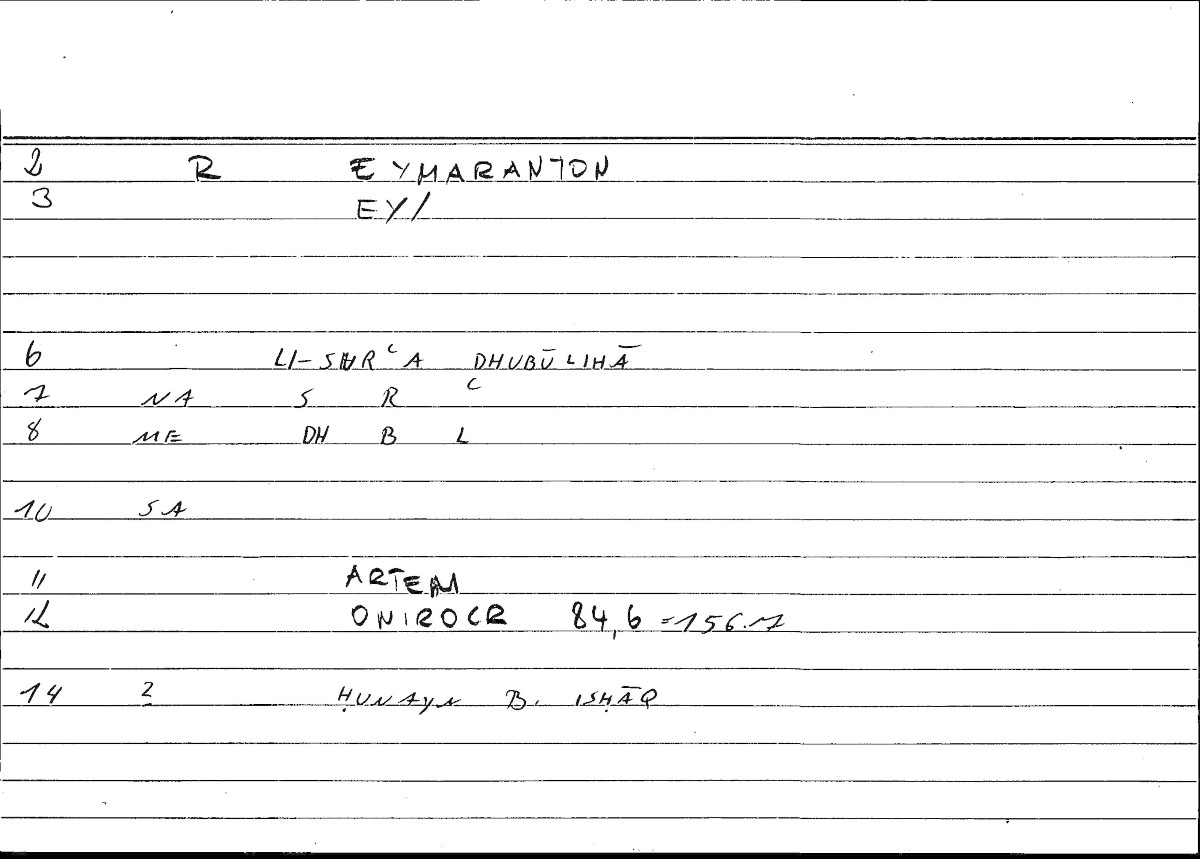 2 R EYMARANTON
3 EY/
6 LI-SURʿA DHUBŪLIHĀ
7 NA S R ʿ
8 ME DH B L
10 SA
11 ARTEM
12 ONIROCR 84,6 =156.17
14 2 ḤUNAYN B. ISḤĀQ